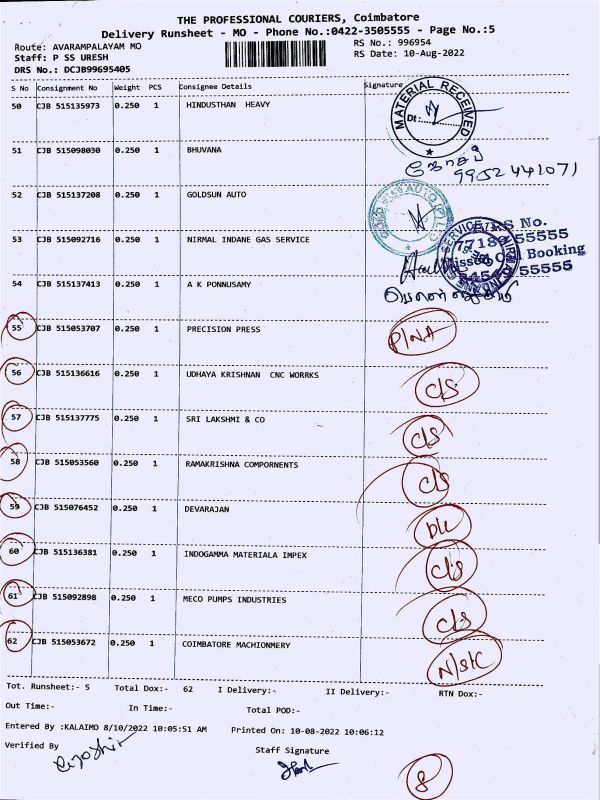 THE PROFESSIONAL COURIERS, Coimbatore
Delivery Runsheet - MO - Phone No.:0422-3505555 - Page No.:5
Route: AVARAMPALAYAM MO RS No.: 996954
Staff: P SS URESH RS Date: 10-Aug-2022
DRS No.: DCJB99695405
S No Consignment No Weight PCS Consignee Details Signature
50 CJB 515135973 0.250 1 HINDUSTHAN HEAVY
MATERIAL RECEIVED
Dt:
9952441071
51 CJB 515098030 0.250 1 BHUVANA
52 CJB 515137208 0.250 1 GOLDSUN AUTO
53 CJB 515092716 0.250 1 NIRMAL INDANE GAS SERVICE
RS No.
55555
Missed Call Booking
55555
54 CJB 515137413 0.250 1 A K PONNUSAMY
55 CJB 515053707 0.250 1 PRECISION PRESS P/NA
56 CJB 515136616 0.250 1 UDHAYA KRISHNAN CNC WORRKS C/S
57 CJB 515137775 0.250 1 SRI LAKSHMI & CO C/S
58 CJB 515053560 0.250 1 RAMAKRISHNA COMPORNENTS C/S
59 CJB 515076452 0.250 1 DEVARAJAN D/L
60 CJB 515136381 0.250 1 INDOGAMMA MATERIALA IMPEX C/S
61 CJB 515092898 0.250 1 MECO PUMPS INDUSTRIES C/S
62 CJB 515053672 0.250 1 COIMBATORE MACHIONMERY N/S/C
Tot. Runsheet:- 5 Total Dox:- 62 I Delivery:- II Delivery:- RTN Dox:-
Out Time:- In Time:- Total POD:-
Entered By :KALAIMO 8/10/2022 10:05:51 AM Printed On: 10-08-2022 10:06:12
Verified By Staff Signature
8